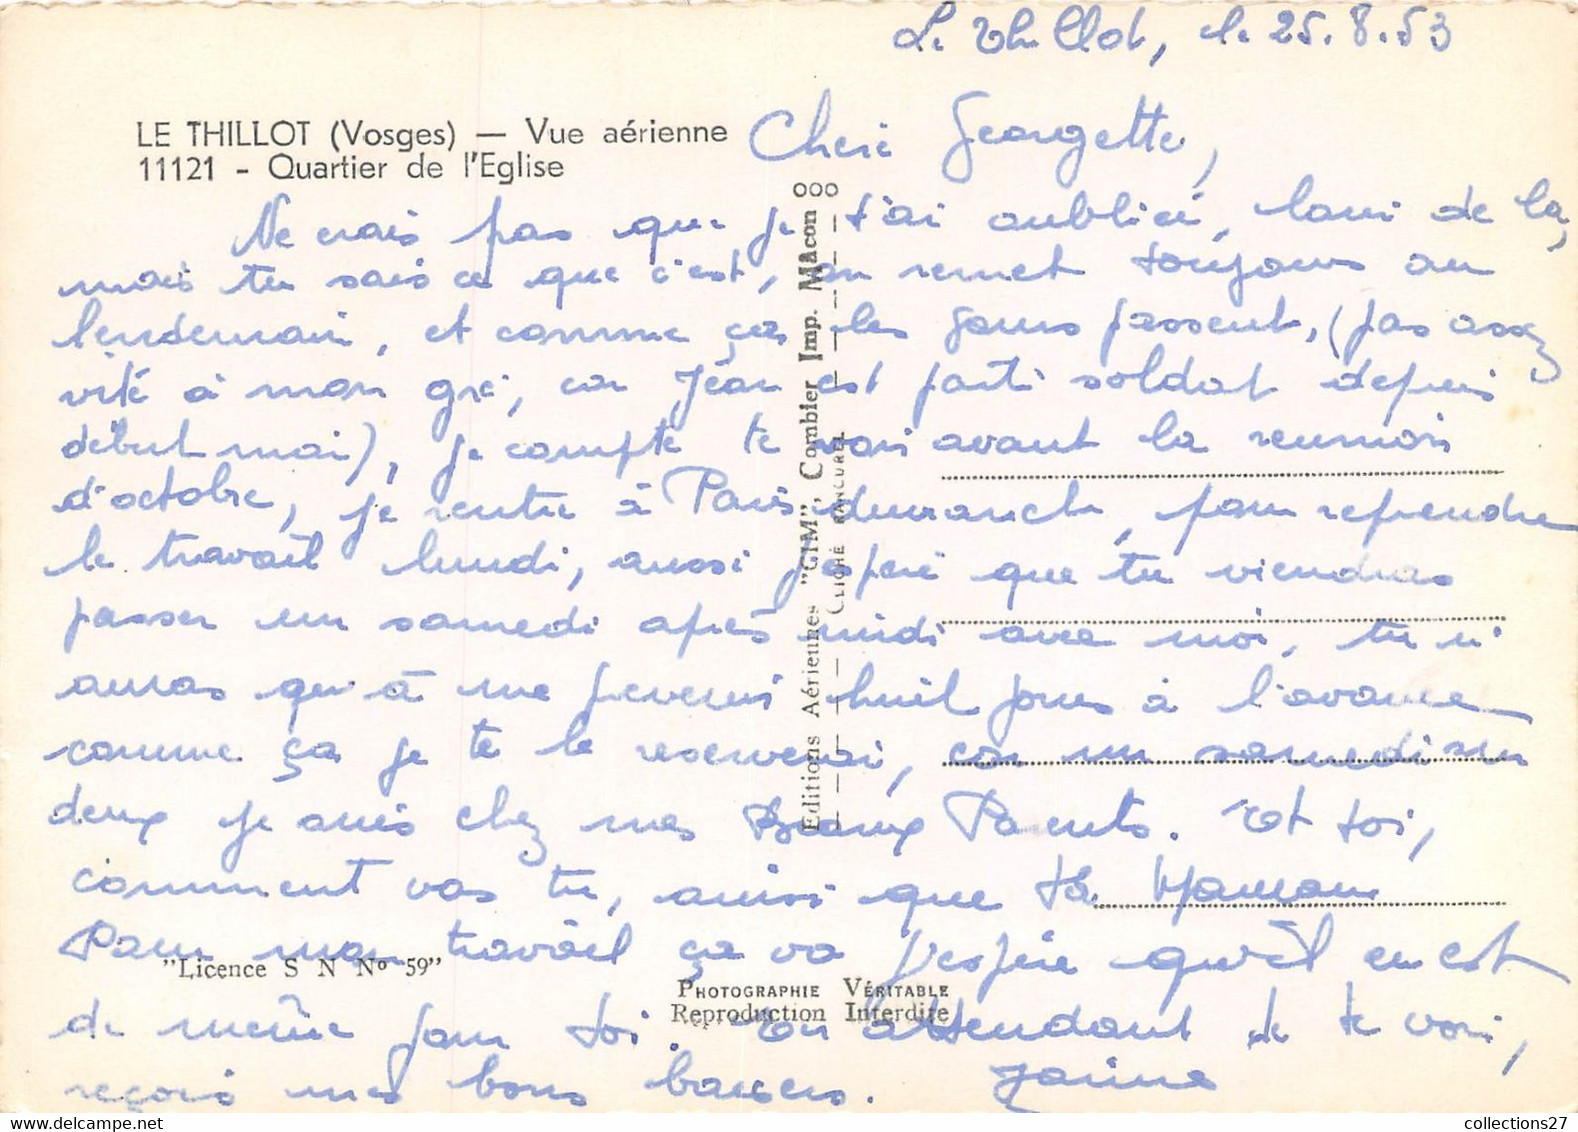 Le Thillot, le 25.8.53
LE THILLOT (Vosges) — Vue aérienne
11121 - Quartier de l'Eglise
Cheri Georgette,
Ne crois pas que je t'ai oublié, loin de là,
mais tu sais ce que c'est, on remet toujours au
lendemain, et comme ça les jours passent, (pas assez
vite à mon gré, car Jean est parti soldat depuis
début mai), je compte te voir avant la reunion
d'octobre, je rentre à Paris dimanche, pour reprendre
le travail lundi, aussi j'espère que tu viendras
passer un samedi après midi avec moi, tu n'
auras qu'à me prevenir huit jours à l'avance
comme ça je te le reserverai, car un samedi sur
deux je suis chez mes Beaux Parents. Et toi,
comment vas tu, ainsi que ta Maman
Pour mon travail ça va j'espère qu'il en est
de même pour toi. En attendant de te voir,
reçois mes bons baisers. Janine
Editions Aériennes "CIM", Combier Imp. Mâcon
CLICHÉ RANCUREL
"Licence S N Nº 59"
PHOTOGRAPHIE VÉRITABLE
Reproduction Interdite
collections27